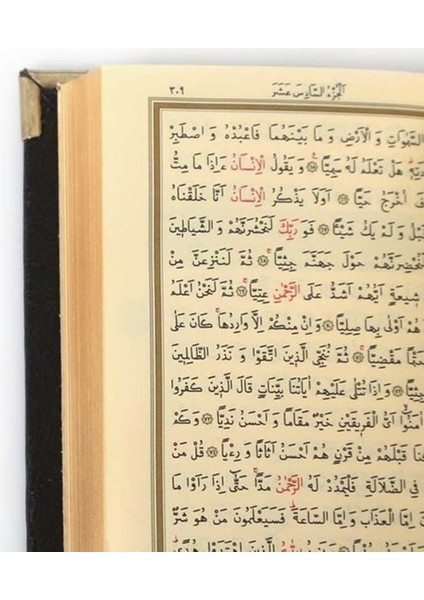 ٣٠٩ اَلْجُزْءُ السَّادِسَ عَشَرَ
السَّمٰوَاتِ وَ الْاَرْضِ وَ مَا بَيْنَهُمَا فَاعْبُدْهُ وَ اصْطَبِرْ
هَلْ تَعْلَمُ لَهُ سَمِيًّا ﴿٦٥﴾ وَ يَقُولُ الْاِنْسَانُ ءَاِذَا مَا مِتُّ
اُخْرَجُ حَيًّا ﴿٦٦﴾ اَوَلَا يَذْكُرُ الْاِنْسَانُ اَنَّا خَلَقْنَاهُ
قَبْلُ وَ لَمْ يَكُ شَيْئًا ﴿٦٧﴾ فَوَ رَبِّكَ لَنَحْشُرَنَّهُمْ وَ الشَّيَاطِينَ
لَنُحْضِرَنَّهُمْ حَوْلَ جَهَنَّمَ جِثِيًّا ﴿٦٨﴾ ثُمَّ لَنَنْزِعَنَّ مِنْ
شِيعَةٍ اَيُّهُمْ اَشَدُّ عَلَى الرَّحْمٰنِ عِتِيًّا ﴿٦٩﴾ ثُمَّ لَنَحْنُ اَعْلَمُ
هُمْ اَوْلٰى بِهَا صِلِيًّا ﴿٧٠﴾ وَ اِنْ مِنْكُمْ اِلَّا وَارِدُهَا كَانَ عَلٰى
حَتْمًا مَقْضِيًّا ﴿٧١﴾ ثُمَّ نُنَجِّي الَّذِينَ اتَّقَوْا وَ نَذَرُ الظَّالِمِينَ
جِثِيًّا ﴿٧٢﴾ وَ اِذَا تُتْلٰى عَلَيْهِمْ اٰيَاتُنَا بَيِّنَاتٍ قَالَ الَّذِينَ كَفَرُوا
اٰمَنُوا اَىُّ الْفَرِيقَيْنِ خَيْرٌ مَقَامًا وَ اَحْسَنُ نَدِيًّا ﴿٧٣﴾ وَ كَمْ
قَبْلَهُمْ مِنْ قَرْنٍ هُمْ اَحْسَنُ اَثَاثًا وَ رِءْيًا ﴿٧٤﴾ قُلْ مَنْ
فِي الضَّلَالَةِ فَلْيَمْدُدْ لَهُ الرَّحْمٰنُ مَدًّا حَتّٰى اِذَا رَاَوْا مَا
اِمَّا الْعَذَابَ وَ اِمَّا السَّاعَةَ فَسَيَعْلَمُونَ مَنْ هُوَ شَرٌّ
اللّٰهُ الَّذِينَ اهْتَدَوْا هُدًى